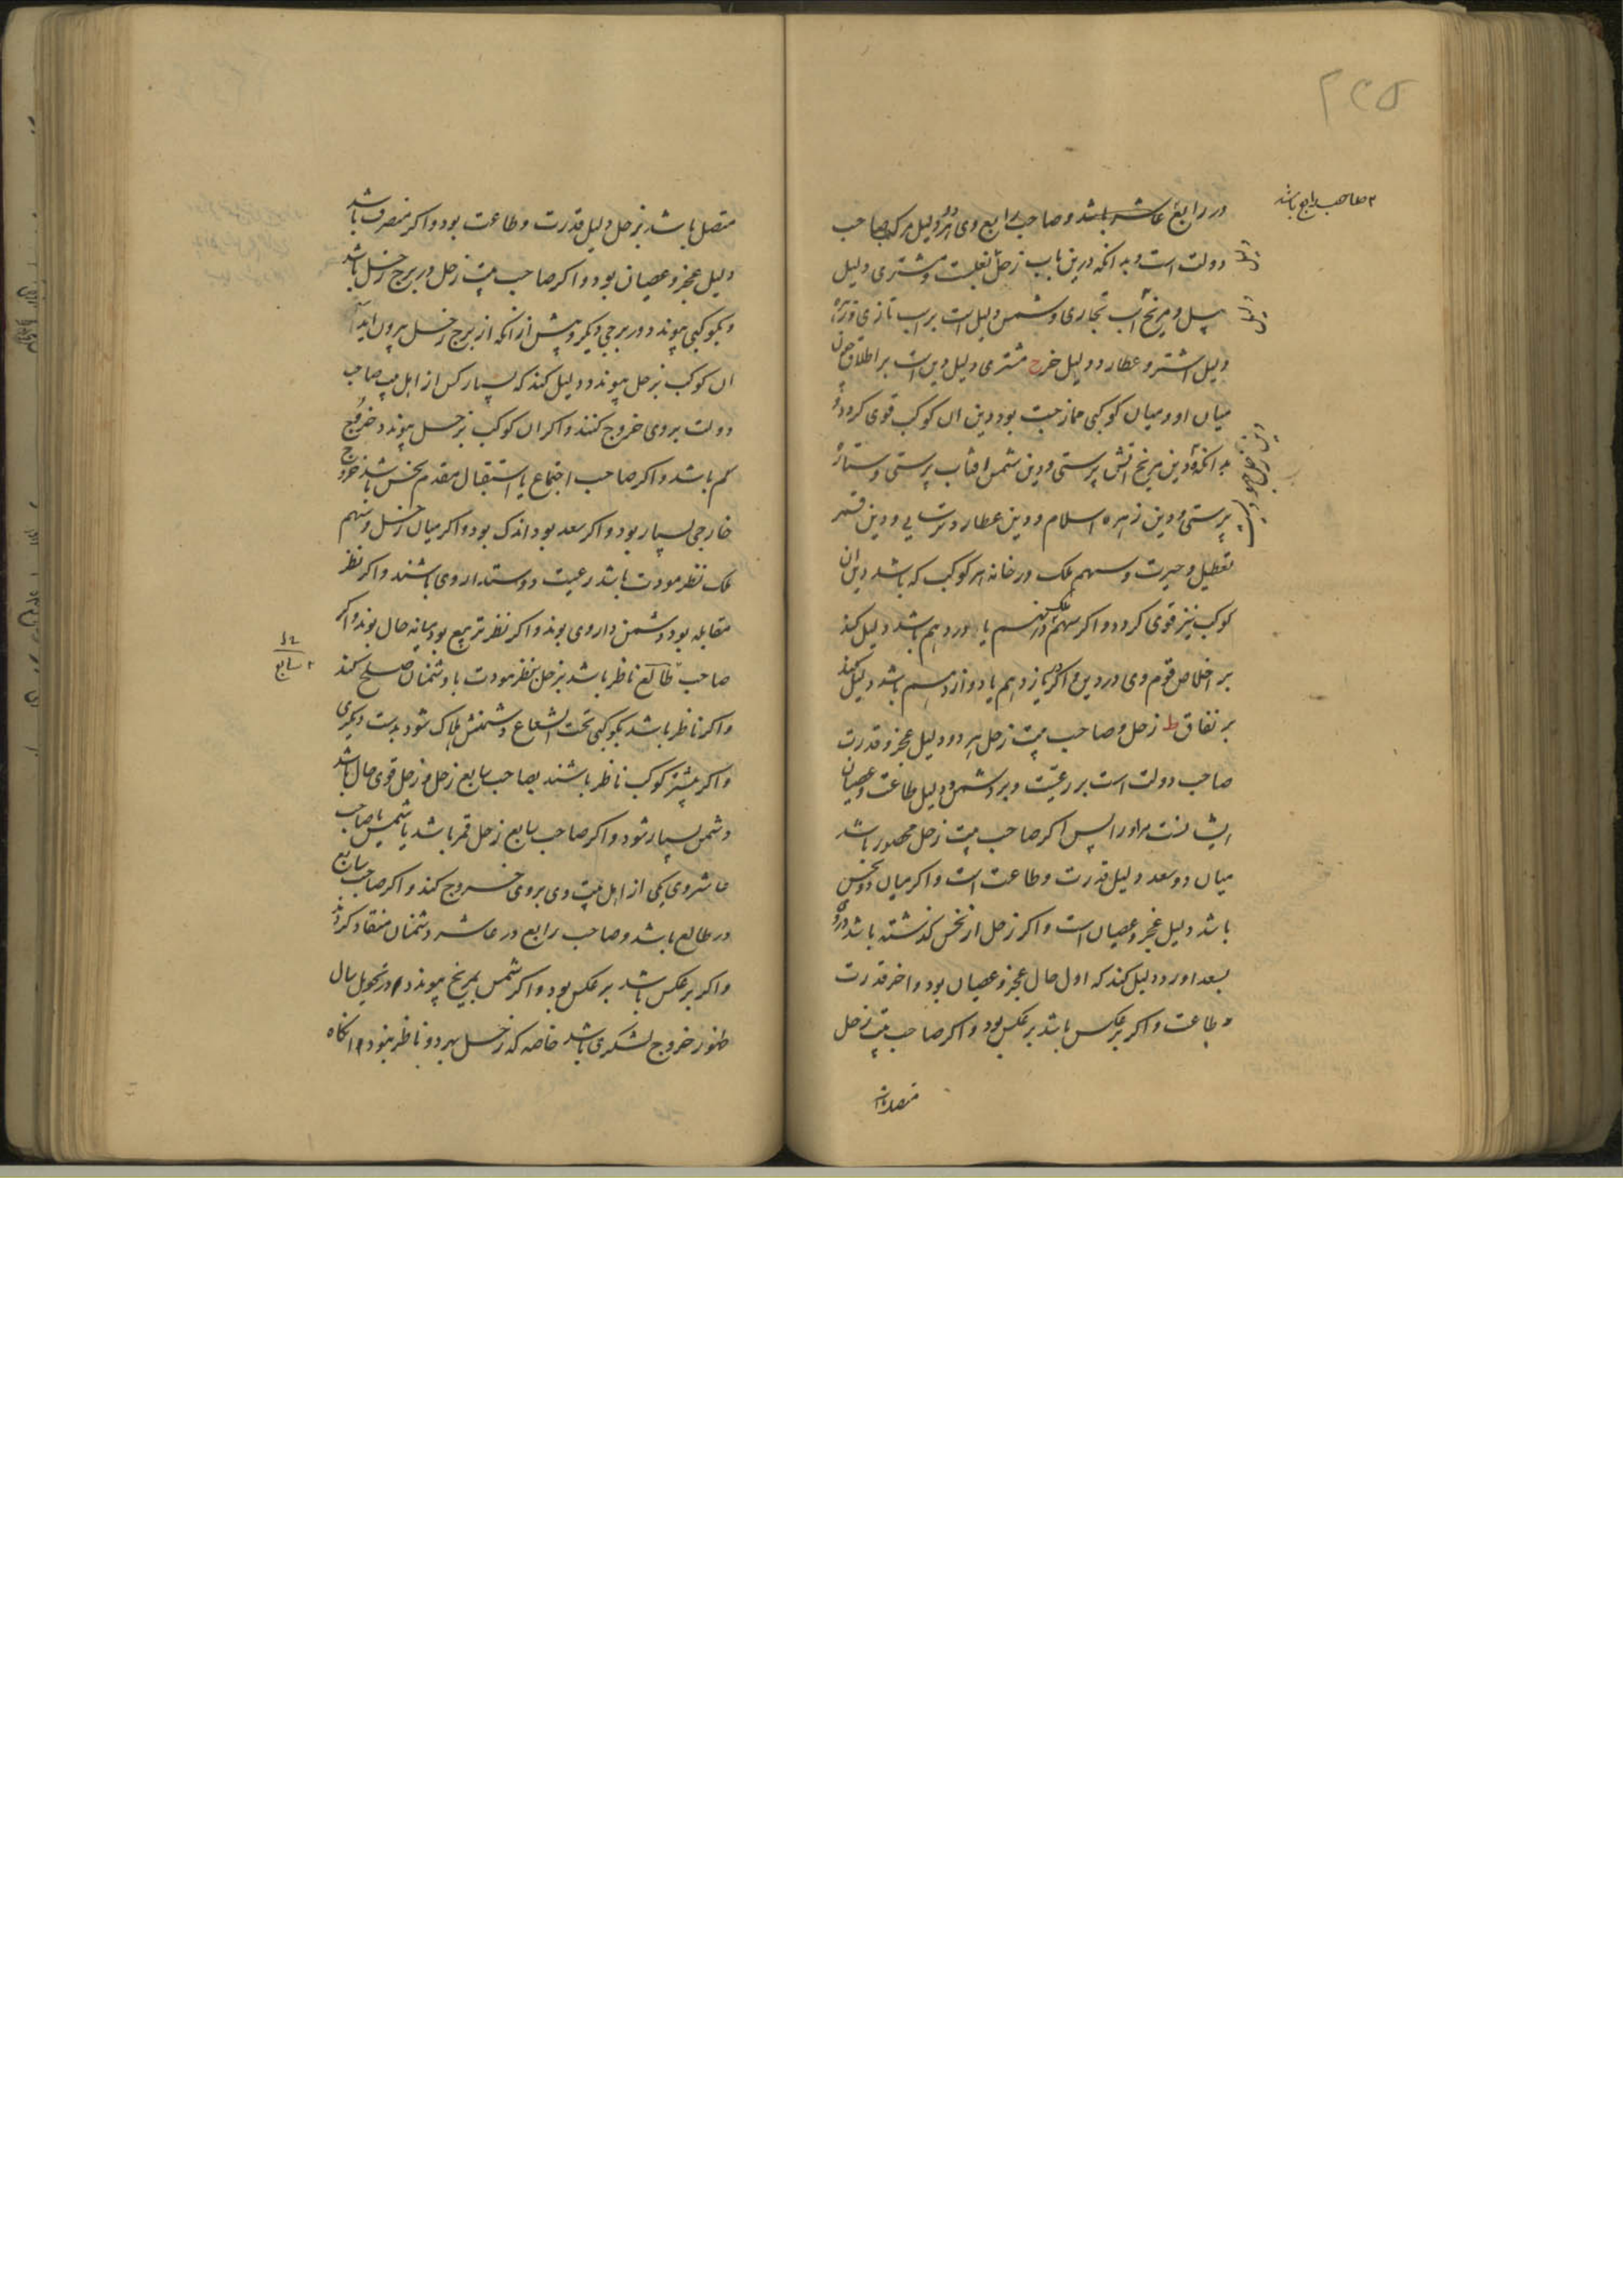 ۲۳۵
صاحب رابع باشد
در رابع عاشر باشد و صاحب رابع وی هر دو دلیل مرکب صاحب
دولت است و بدانکه درین باب زحل دلیل و مشتری دلیل
پیل و مریخ اسب تجاری و شمس دلیل است بر اسب تازی و زهره
دلیل اشتر و عطارد دلیل خر ح مشتری دلیل دین است بر اطلاق چون
میان او و میان کوکبی ممازجت بود دین آن کوکب قوی گردد و
بدانکه دین مریخ آتش پرستی و دین شمس آفتاب پرستی و ستاره
پرستی و دین زهره اسلام و دین عطارد ترسایی و دین قمر
تعطیل و حیرت و سهم ملک در خانه هر کوکب که باشد دین آن
کوکب نیز قوی گردد و اگر سهم ملک در نهم یا در دهم باشد دلیل کند
بر اخلاص قوم وی در دین و اگر در یازدهم یا دوازدهم باشد دلیل کند
بر نفاق ط زحل و صاحب بیت زحل هر دو دلیل عجز و قدرت
صاحب دولت است بر رعیت و بر دشمن و دلیل طاعت و عصیان
ایشانست مر او را پس اگر صاحب بیت زحل محصور باشد
میان دو سعد دلیل قدرت و طاعت است و اگر میان دو نحس
باشد دلیل عجز و عصیان است و اگر زحل از نحس گذشته باشد و
بسعد آورد دلیل کند که اول حال عجز و عصیان بود و آخر قدرت
و طاعت و اگر بر عکس باشد بر عکس بود و اگر صاحب بیت زحل
متصل باشد
متصل باشد بزحل دلیل قدرت و طاعت بود و اگر منصرف باشد
دلیل عجز و عصیان بود و اگر صاحب بیت زحل در برج زحل باشد
و بکوکبی پیوندد در برجی دیگر و پیش از آنکه از برج زحل بیرون آید
آن کوکب بزحل پیوندد دلیل کند که بسیار کس از اهل بیت صاحب
دولت بر وی خروج کنند و اگر آن کوکب بزحل پیوندد خروج
کم باشد و اگر صاحب اجتماع یا استقبال مقدم نحس باشد خروج
خارجی بسیار بود و اگر سعد بود اندک بود و اگر میان زحل و سهم
ملک نظر مودت باشد رعیت دوستدار وی باشند و اگر نظر
مقابله بود دشمن دار وی بوند و اگر نظر تربیع بود میانه حال بوند و اگر
صاحب طالع ناظر باشد بزحل بنظر مودت با دشمنان صلح کند
سابع
و اگر ناظر باشد بکوکبی تحت الشعاع دشمنش هلاک شود بدست دیگری
و اگر بیشتر کوکب ناظر باشند بصاحب سابع زحل و زحل قوی حال باشد
دشمن بسیار شود و اگر صاحب سابع زحل قمر باشد یا شمس یا صاحب
عاشر وی یکی از اهل بیت وی بر وی خروج کند و اگر صاحب سابع
در طالع باشد و صاحب رابع در عاشر دشمنان منقاد گردند
و اگر بر عکس باشد بر عکس بود و اگر شمس بمریخ پیوندد در تحویل سال
ظهور خروج لشکری باشد خاصه که زحل بهر دو ناظر بود